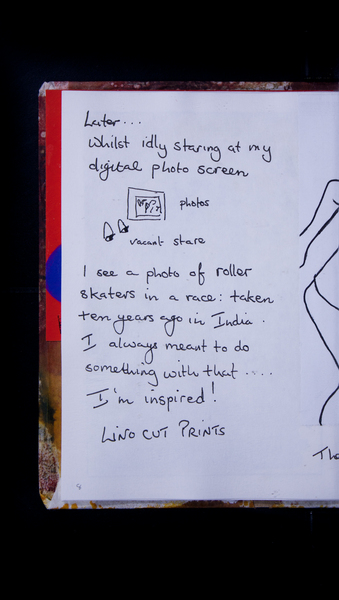 Later...
Whilst idly staring at my
digital photo screen
photos
vacant stare
I see a photo of roller
skaters in a race: taken
ten years ago in India.
I always meant to do
something with that ....
I'm inspired!
LINO CUT PRINTS
8